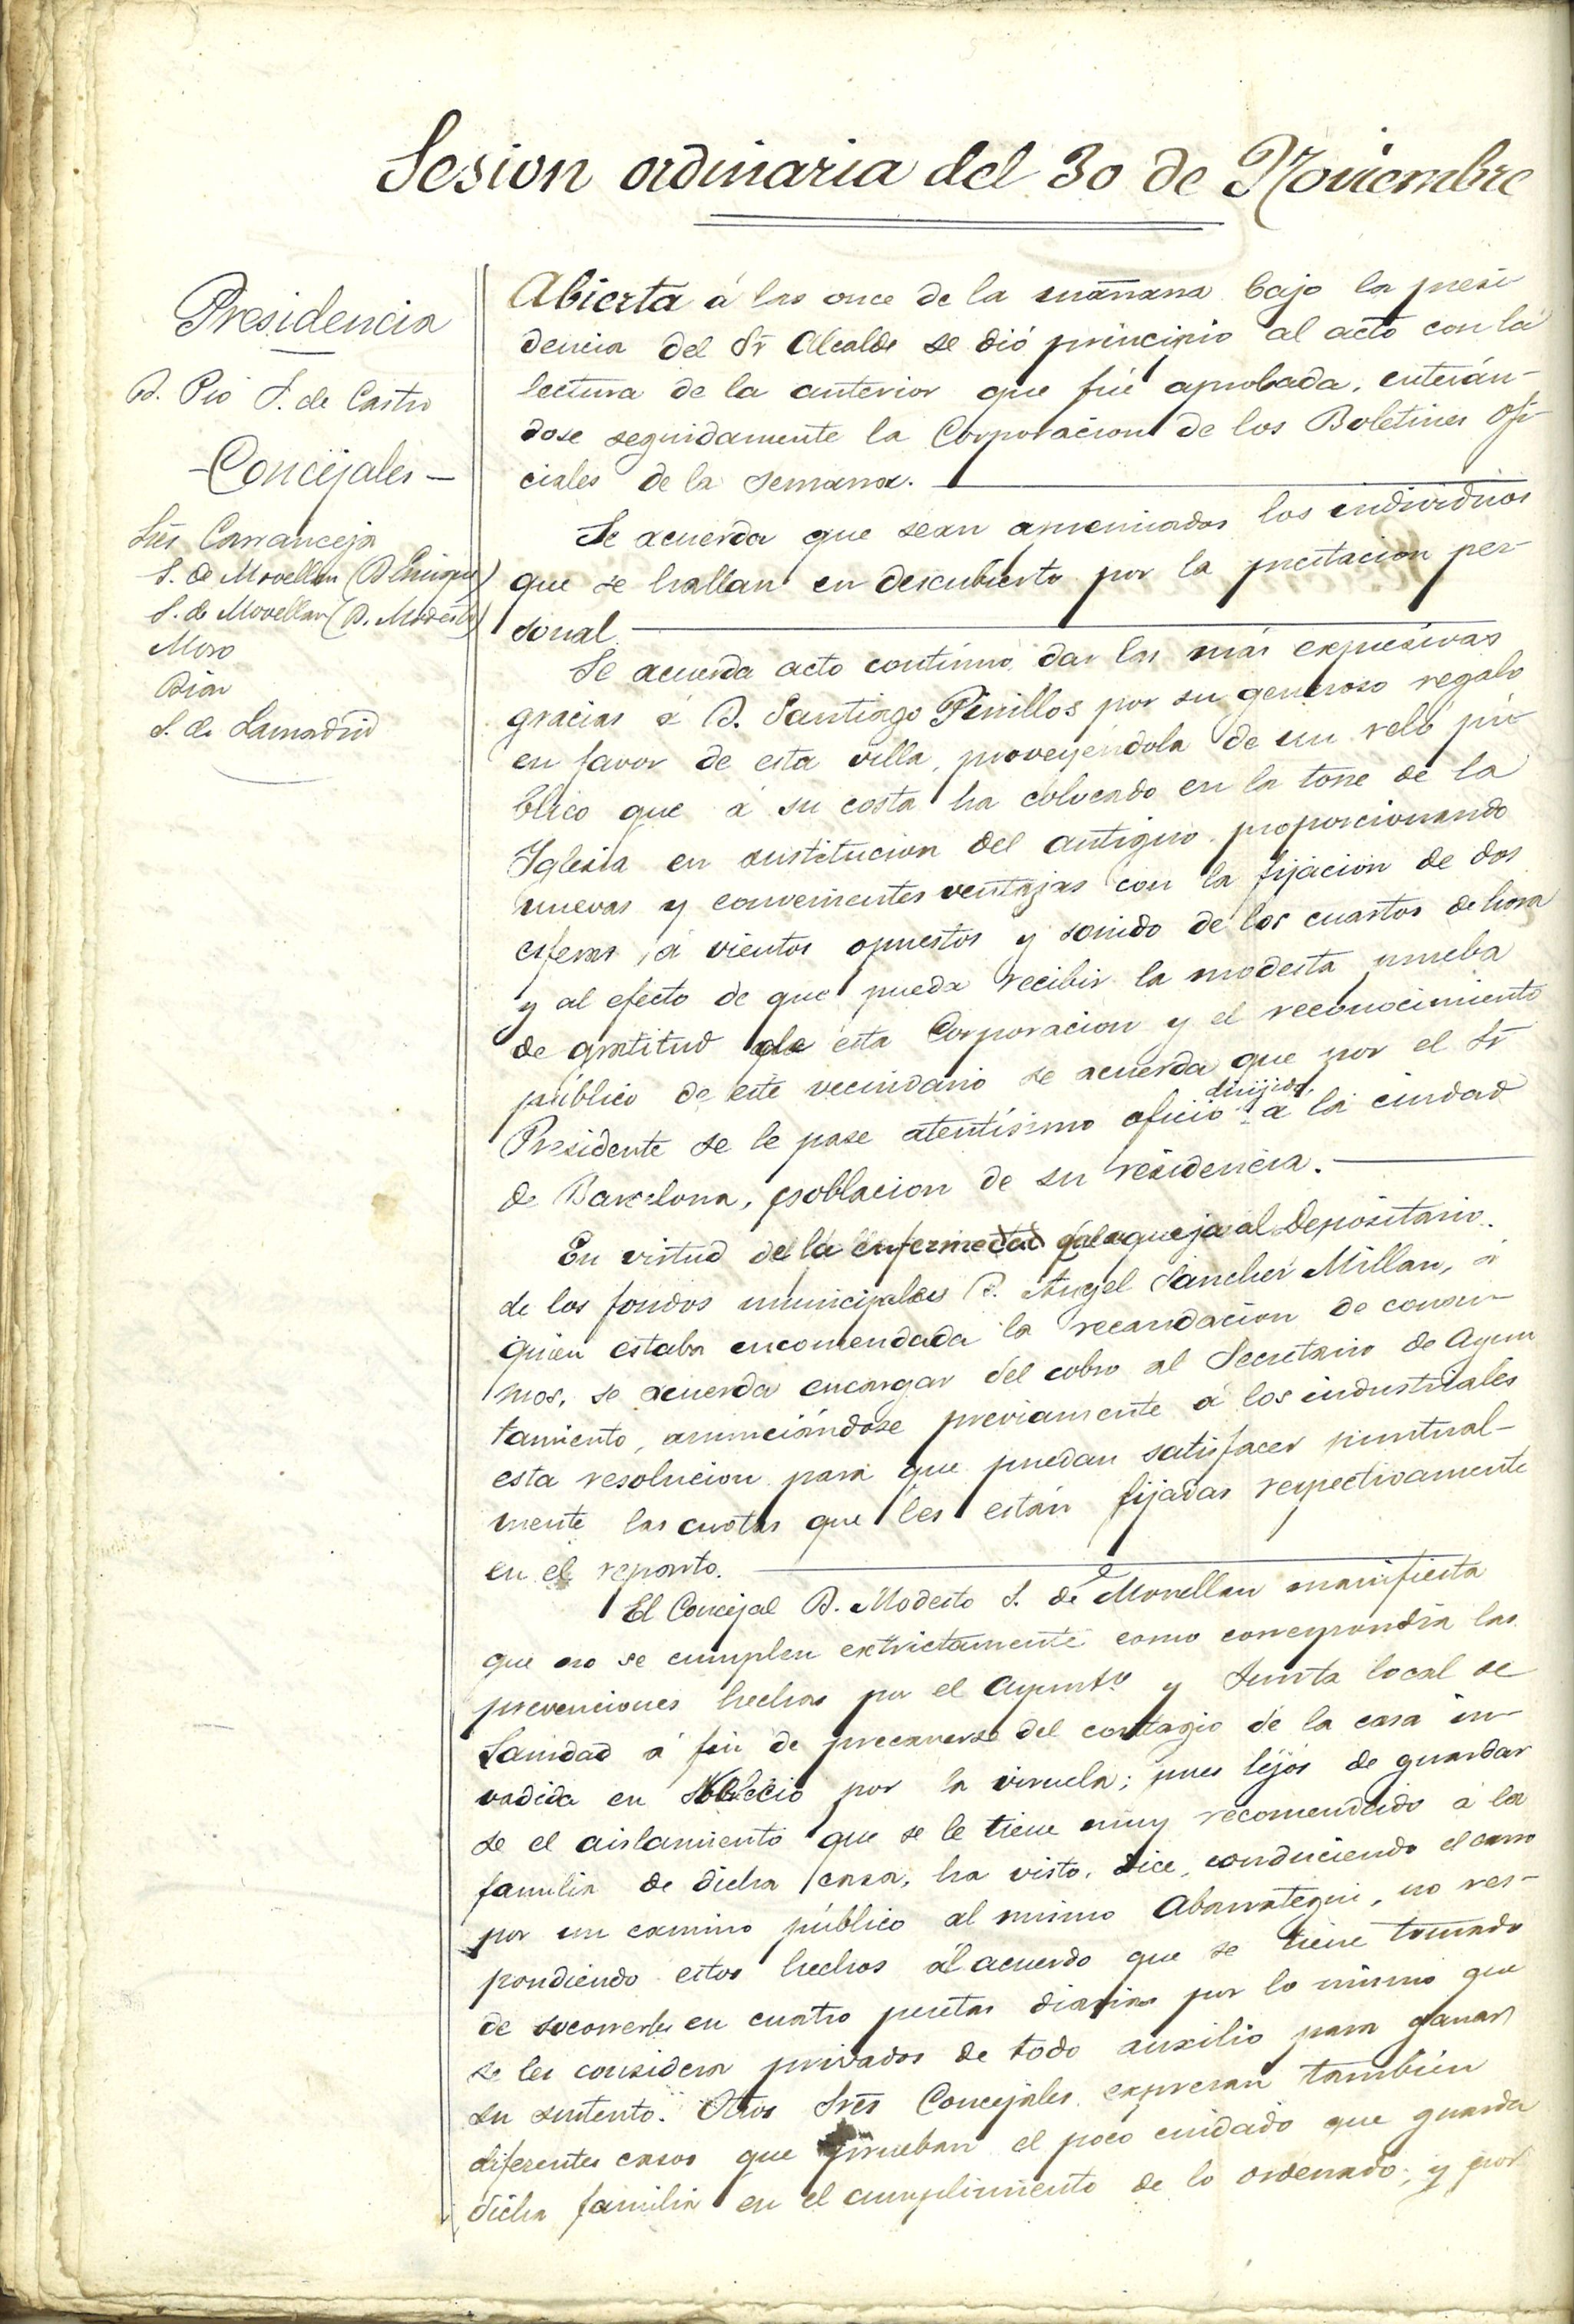 Sesion ordinaria del 30 de Noviembre
Presidencia
D. Pio S. de Castro
Concejales
Sres Carranceja
S. de Movellan (D. Enrique)
S. de Movellan (D. Modesto)
Moro
Dian
S. de Lamadrid
Abierta á las once de la mañana bajo la presi
dencia del Sr Alcalde se dió principio al acto con la
lectura de la anterior que fué aprobada, enterán-
dose seguidamente la Corporacion de los Boletines Ofi-
ciales de la semana.
Se acuerda que sean apremiados los individuos
que se hallan en descubierto por la prestacion per-
sonal.
Se acuerda acto continuo dar las más expresivas
gracias á D. Santiago Pinillos por su generoso regalo
en favor de esta villa, proveyéndola de un reló pú-
blico que á su costa ha colocado en la torre de la
Iglesia en sustitucion del antiguo proporcionando
nuevas y convenientes ventajas con la fijacion de dos
esferas á vientos opuestos y sonido de los cuartos de hora
y al efecto de que pueda recibir la modesta prueba
de gratitud de esta Corporacion y el reconocimiento
público de este vecindario se acuerda que por el Sr
Presidente se le pase atentísimo oficio dirijido á la ciudad
de Barcelona, poblacion de su residencia.
En virtud de la enfermedad que aqueja al Depositario
de los fondos municipales D. Angel Sanchez Millan, á
quien estaba encomendada la recaudacion de consu-
mos, se acuerda encargar del cobro al Secretario de Ayun
tamiento, anunciándose previamente á los industriales
esta resolucion para que puedan satisfacer puntual-
mente las cuotas que les están fijadas respectivamente
en el reparto.
El Concejal D. Modesto S. de Movellan manifiesta
que no se cumplen extrictamente como correspondia las
prevenciones hechas por el Ayuntº y Junta local de
Sanidad á fin de precaverse del contagio de la casa in-
vadida en por la viruela; pues lejos de guardar
se el aislamiento que se le tiene muy recomendado á la
familia de dicha casa, ha visto, dice, conduciendo el carro
por un camino público al mismo Abarrategui, no res-
pondiendo estos hechos al acuerdo que se tiene tomado
de socorrerles en cuatro pesetas diarias por lo mismo que
se les considera privados de todo auxilio para ganar
su sustento. Otros Sres Concejales expresan también
diferentes casos que prueban el poco cuidado que guarda
dicha familia en el cumplimiento de lo ordenado; y por